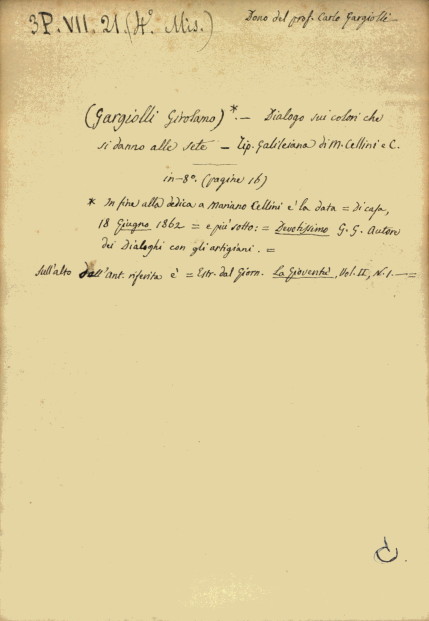 3P. VII. 21. (4º. Mis.)
Dono del prof. Carlo Gargiolli —
(Gargiolli Girolamo)*. — Dialogo sui colori che
si danno alle sete — Tip. Galileiana di M. Cellini e C.
in-8º. (pagine 16)
* In fine alla dedica a Mariano Cellini è la data = Di casa,
18 Giugno 1862 = e più sotto: = Devotissimo G. G. Autore
dei Dialoghi con gli artigiani. =
Sull'alto dell'Ant. riferita è = Estr. dal Giorn. La Gioventù, Vol. II, N. 1. — =